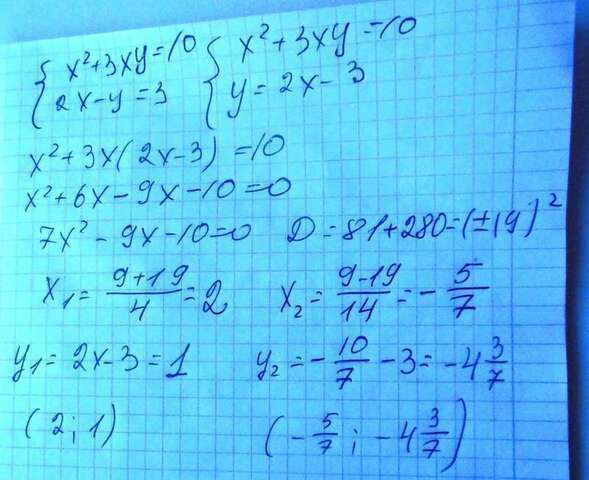 { x²+3xy=10 { x²+3xy=10
2x-y=3 y=2x-3
x²+3x(2x-3)=10
x²+6x-9x-10=0
7x²-9x-10=0 D=81+280=(±19)²
x₁=(9+19)/4=2 x₂=(9-19)/14=-5/7
y₁=2x-3=1 y₂=-10/7-3=-4 3/7
(2;1) (-5/7;-4 3/7)